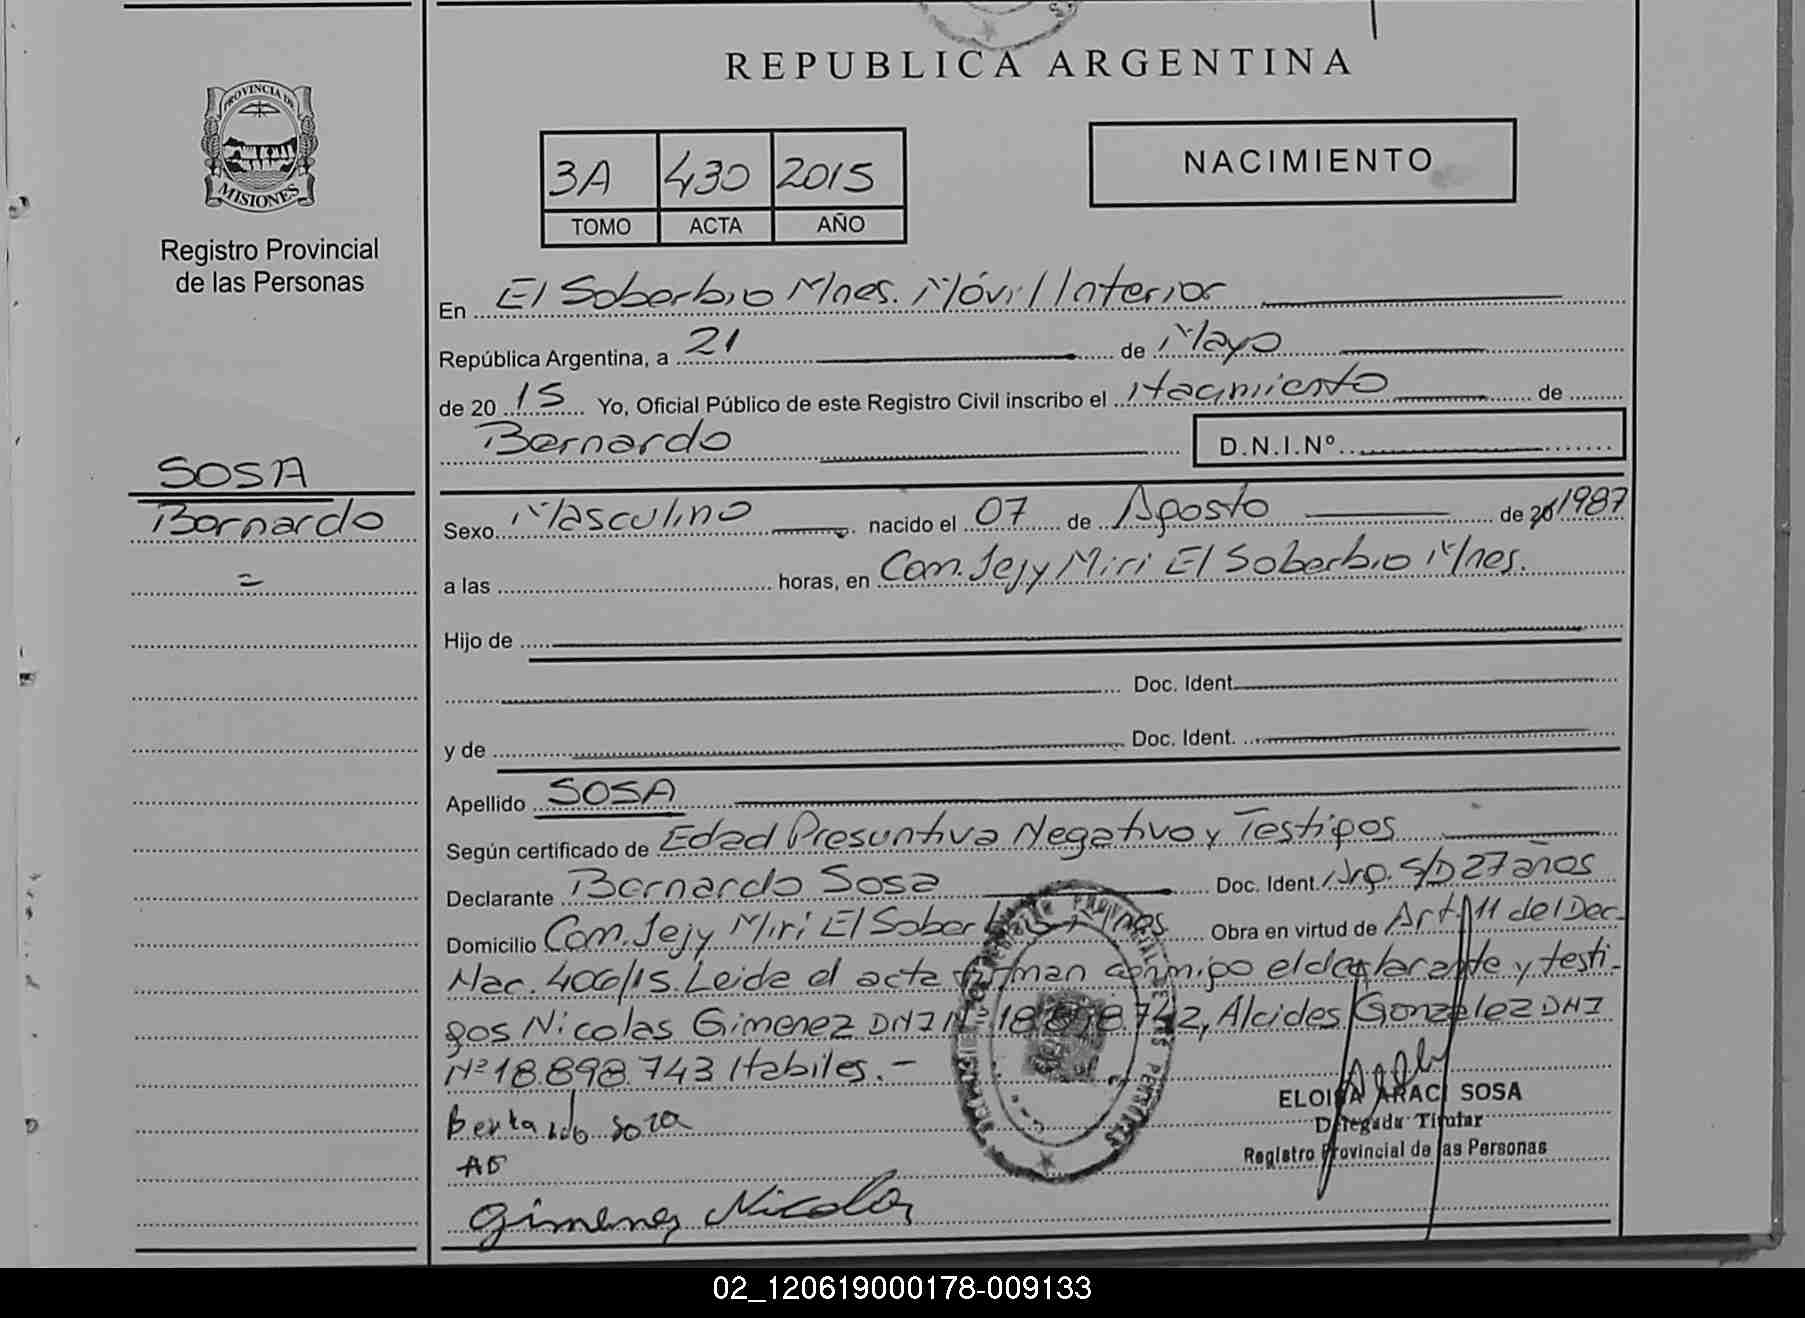 REPUBLICA ARGENTINA
PROVINCIA DE
MISIONES
Registro Provincial
de las Personas
3A 430 2015
TOMO ACTA AÑO
NACIMIENTO
En El Soberbio Mnes. Móvil Interior
República Argentina, a 21 de Mayo
de 20 15 Yo, Oficial Público de este Registro Civil inscribo el Nacimiento de
Bernardo D.N.I.Nº
SOSA
Bernardo
=
Sexo Masculino nacido el 07 de Agosto de 20 1987
a las horas, en Com. Jejy Miri El Soberbio Mnes.
Hijo de
Doc. Ident.
y de Doc. Ident.
Apellido SOSA
Según certificado de Edad Presuntiva Negativo y Testigos
Declarante Bernardo Sosa Doc. Ident. Arg. S/D 27 años
Domicilio Com. Jejy Miri El Soberbio Mnes Obra en virtud de Art. 11 del Dec.
Nac. 406/15. Leida el acta firman conmigo el declarante y testi-
gos Nicolas Gimenez DNI Nº 18898742, Alcides Gonzalez DNI
Nº 18.898.743 Habiles. -
Bernardo Sosa
AG
Gimenez Nicolas
ELOISA ARACI SOSA
Delegada Titular
Registro Provincial de las Personas
02_120619000178-009133